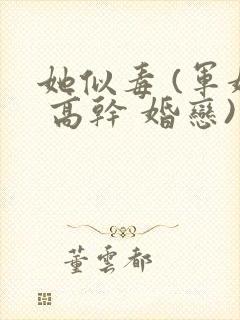 她似毒(軍
高幹 婚戀)
董雲都